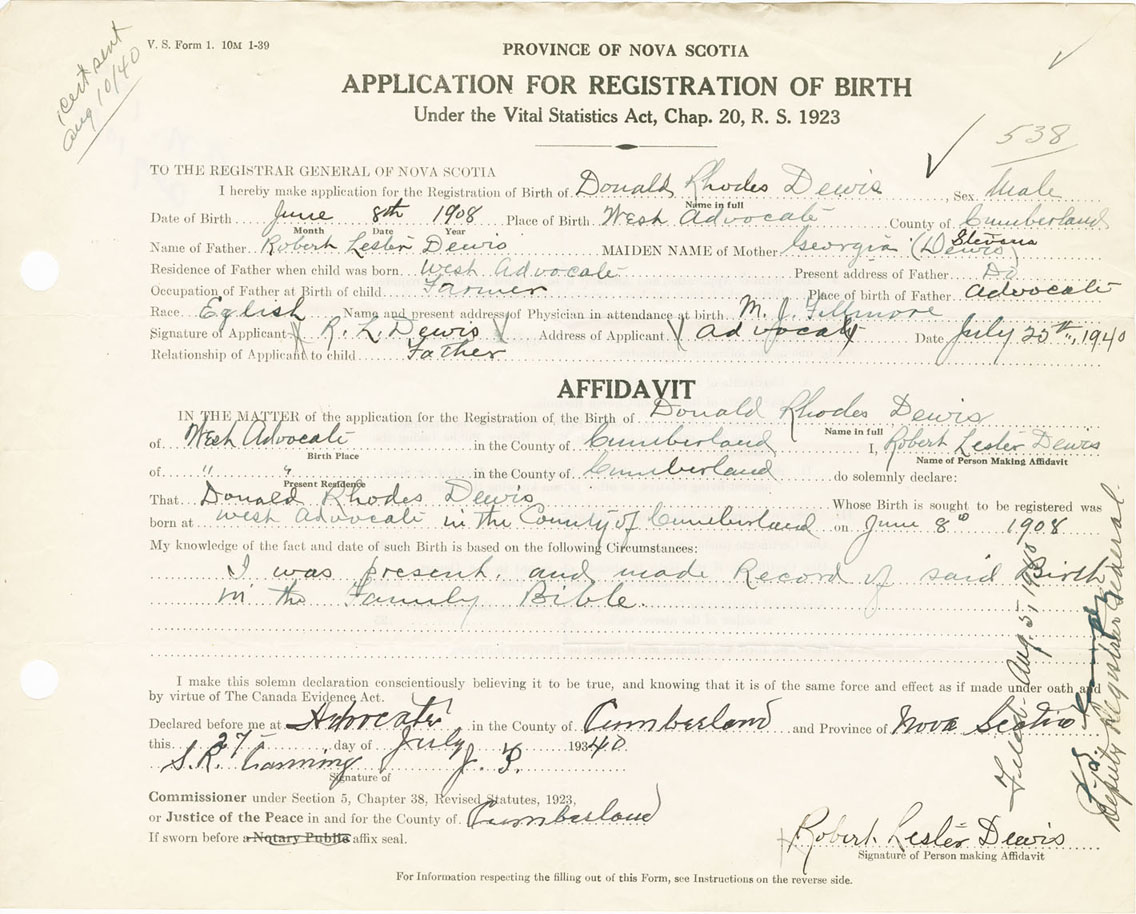 cert sent
Aug 10/40
V. S. Form 1. 10M 1-39
PROVINCE OF NOVA SCOTIA
APPLICATION FOR REGISTRATION OF BIRTH
Under the Vital Statistics Act, Chap. 20, R. S. 1923
538
TO THE REGISTRAR GENERAL OF NOVA SCOTIA
I hereby make application for the Registration of Birth of Donald Rhodes Dewis, Sex Male
Name in full
Date of Birth June 8th 1908 Place of Birth West Advocate County of Cumberland
Month Date Year
Name of Father Robert Lester Dewis MAIDEN NAME of Mother Georgia (D) Stevens (Dewis)
Residence of Father when child was born West Advocate Present address of Father Do
Occupation of Father at Birth of child Farmer Place of birth of Father Advocate
Race Eglish Name and present address of Physician in attendance at birth M. J. Fillmore
Signature of Applicant R. L. Dewis Address of Applicant Advocate Date July 25th, 1940
Relationship of Applicant to child Father
AFFIDAVIT
IN THE MATTER of the application for the Registration of the Birth of Donald Rhodes Dewis
Name in full
of West Advocate in the County of Cumberland I, Robert Lester Dewis
Birth Place Name of Person Making Affidavit
of " " in the County of Cumberland do solemnly declare:
Present Residence
That Donald Rhodes Dewis, Whose Birth is sought to be registered was
born at West Advocate in the County of Cumberland on June 8th 1908
My knowledge of the fact and date of such Birth is based on the following Circumstances:
I was present, and made Record of said Birth
in the Family Bible.
I make this solemn declaration conscientiously believing it to be true, and knowing that it is of the same force and effect as if made under oath and
by virtue of The Canada Evidence Act.
Declared before me at Advocate in the County of Cumberland and Province of Nova Scotia
this 27 day of July 19340
S. R. Canning J. P.
Signature of
Commissioner under Section 5, Chapter 38, Revised Statutes, 1923,
or Justice of the Peace in and for the County of Cumberland
If sworn before a Notary Public affix seal.
Robert Lester Dewis
Signature of Person making Affidavit
For Information respecting the filling out of this Form, see Instructions on the reverse side.
Filed Aug. 5, 1940
Deputy Registrar General.